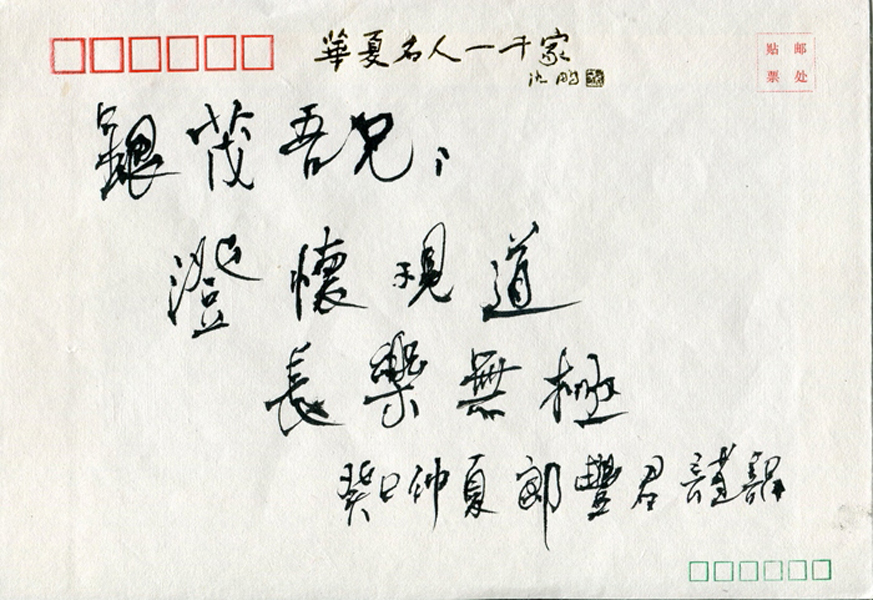 華夏名人一千家
沈鹏
贴邮
票处
銀茂吾兄：
澄懷觀道
長樂無極
癸巳仲夏豐君謹